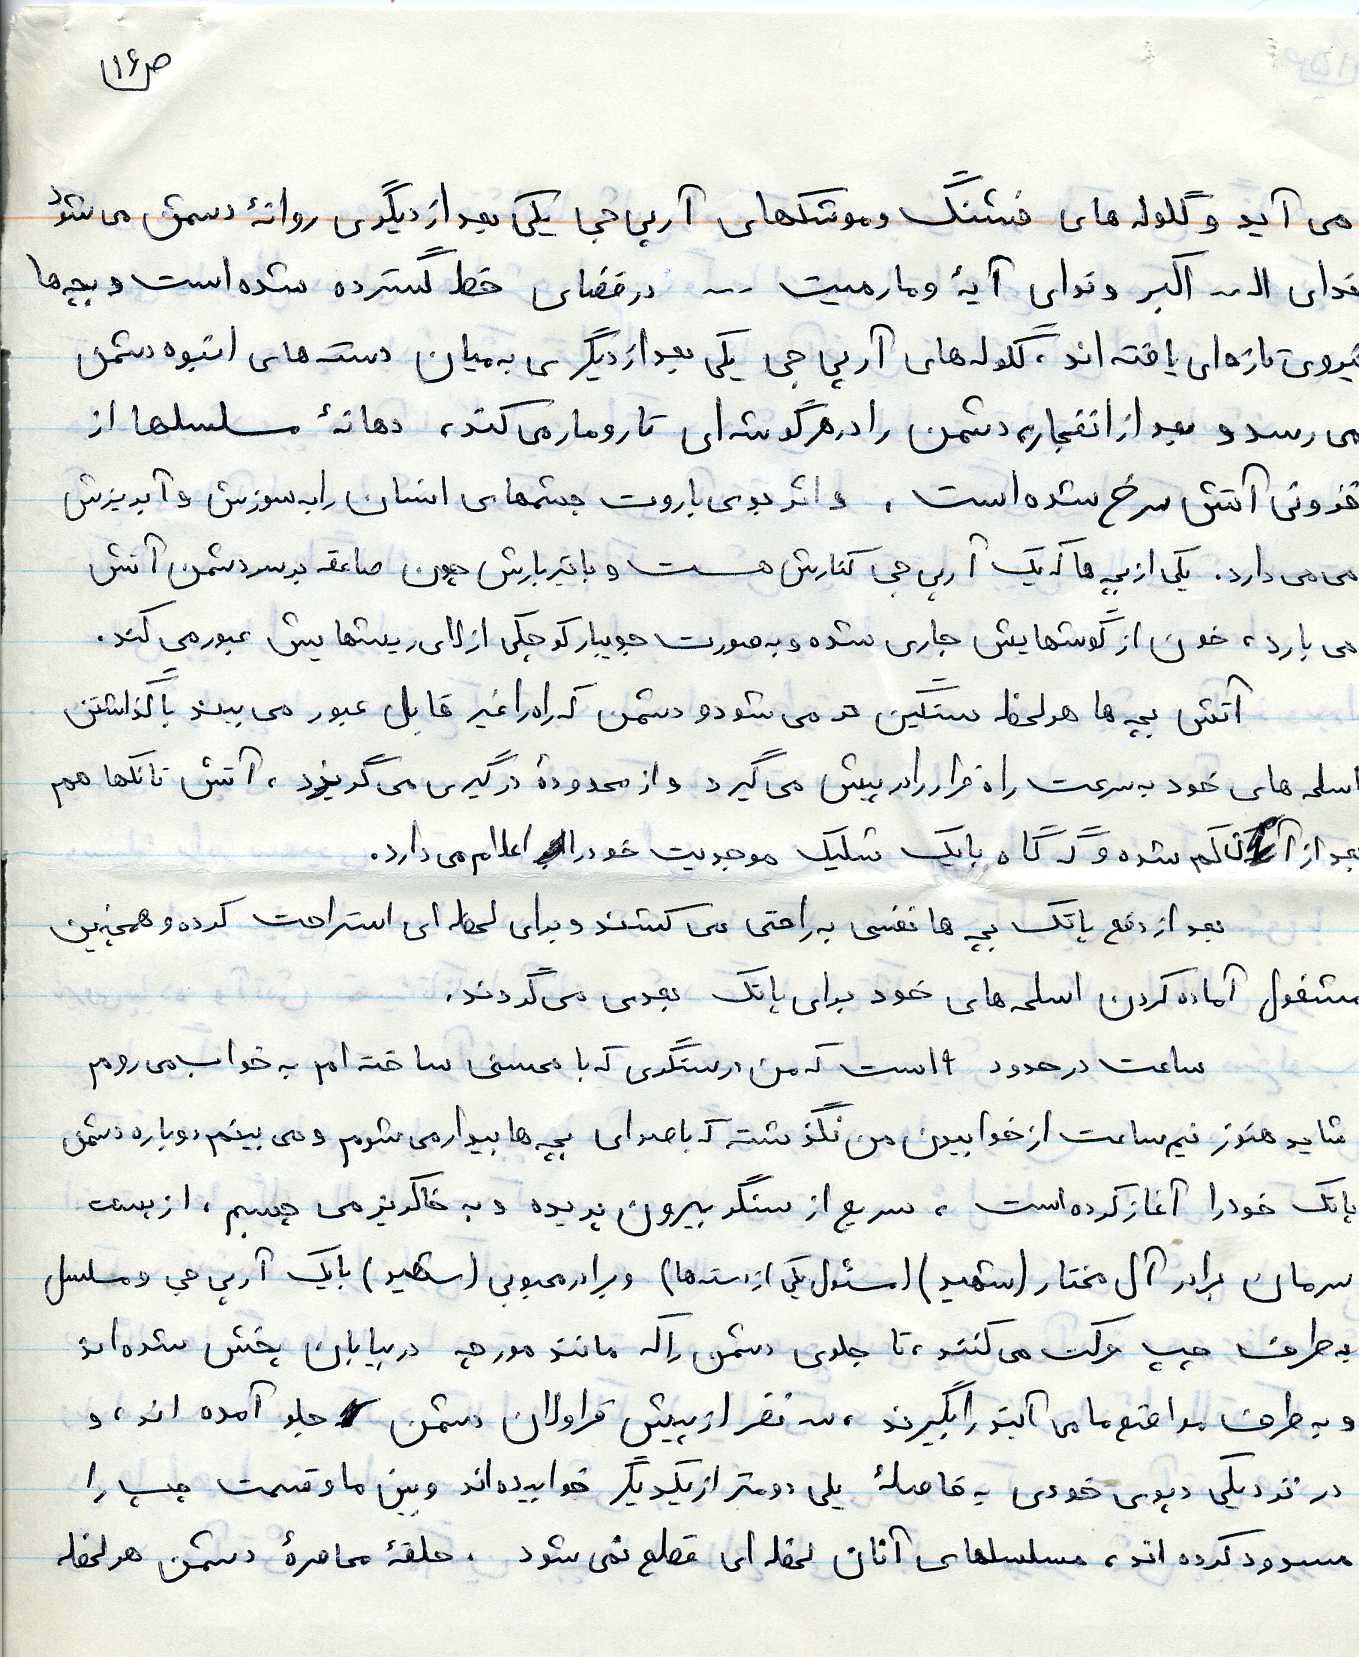 ص ۱۶
می آید و گلوله های فشنگ و موشکهای آرپی جی یکی بعد از دیگری روانهٔ دسمتن می شود
ندای الـ... اکبر و ندای آیهٔ و مارمیت ... در فضای خط گسترده شده است و بچه ها
نیروی تازه ای یافته اند، گلوله های آرپی جی یکی بعد از دیگری به میان دسته های انبوه دشمن
می رسد و بعد از انفجار، دشمن را در هر گوشه ای تارومار می کند، دهانهٔ مسلسلها از
فزونی آتش سرخ شده است، و اثر بوی باروت چشمهای انسان را به سوزش و آبریزش
می می دارد. یکی از بچه ها که یک آرپی جی کنارش هست و با تیربارش چون صاعقه بر سر دشمن آتش
می بارد، خون از گوشهایش جاری شده و به صورت جویبار کوچکی از لای ریشهایش عبور می کند.
آتش بچه ها هر لحظه سنگین تر می شود و دشمن که راه را غیر قابل عبور می بیند با گذاشتن
اسلحه های خود به سرعت راه فرار را در پیش می گیرد و از محدودهٔ درگیری می گریزد، آتش تانکها هم
بعد از آن کم شده و گه گاه با یک شلیک موجودیت خود را اعلام می دارد.
بعد از دفع پاتک بچه ها نفسی به راحتی می کشند و برای لحظه ای استراحت کرده و همچنین
مشغول آماده کردن اسلحه های خود برای پاتک بعدی می گردند.
ساعت در حدود ۹ است که من در سنگری که با محسنی ساخته ام به خواب می روم
شاید هنوز نیم ساعت از خوابیدن من نگذشته که با صدای بچه ها بیدار می شوم و می بینم دوباره دشمن
پاتک خود را آغاز کرده است، سریع از سنگر بیرون پریده و به خاکریز می چسبم، از پست
سرمان برادر آل مختار (شهید) (مسئول یکی از دسته ها) و برادر محبوبی (شهید) با یک آرپی جی و مسلسل
به طرف چپ حرکت می کنند، تا جلوی دشمن را که مانند مورچه در بیابان پخش شده اند
و به طرف مواضع ما می آیند را بگیرند، سه نفر از پیش قراولان دشمن جلو آمده اند، و
در نزدیکی دپوی خودی به فاصلهٔ یکی دو متر از یکدیگر خوابیده اند و بین ما و قسمت چپ را
مسدود کرده اند، مسلسلهای آنان لحظه ای قطع نمی شود. حلقهٔ محاصرهٔ دشمن هر لحظه